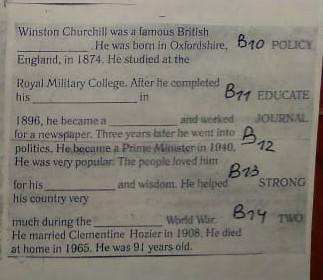 Winston Churchill was a famous British
____________. He was born in Oxfordshire, B10 POLICY
England, in 1874. He studied at the
Royal Military College. After he completed
his ____________ in B11 EDUCATE
1896, he became a ____________ and worked JOURNAL
for a newspaper. Three years later he went into B12
politics. He became a Prime Minister in 1940.
He was very popular. The people loved him
for his ____________ and wisdom. He helped B13 STRONG
his country very
much during the ____________ World War. B14 TWO
He married Clementine Hozier in 1908. He died
at home in 1965. He was 91 years old.